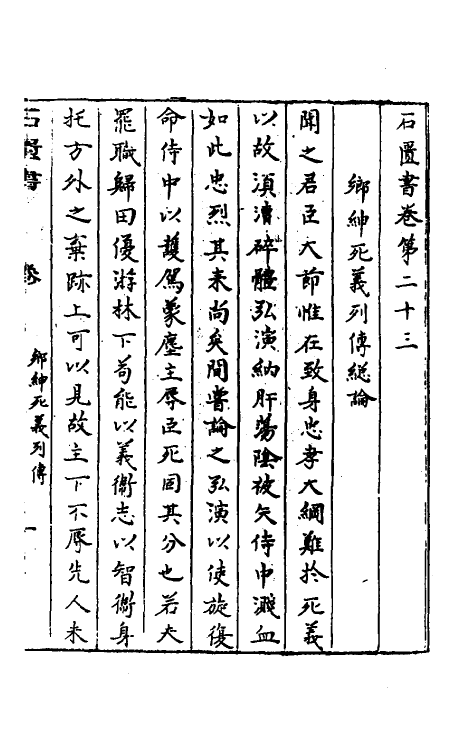 石匱書卷第二十三
鄉紳死義列傳総論
聞之君臣大節惟在致身忠孝大綱難於死義
以故湏瀆碎體弘演納肝蕩陰被矢侍中濺血
如此忠烈其来尚矣間嘗論之弘演以使旋復
命侍中以護駕蒙塵主辱臣死固其分也若夫
罷職歸田優游林下苟能以義衛志以智衛身
托方外之棄跡上可以見故主下不辱先人未
石匱書
卷
鄉紳死義列傳
一